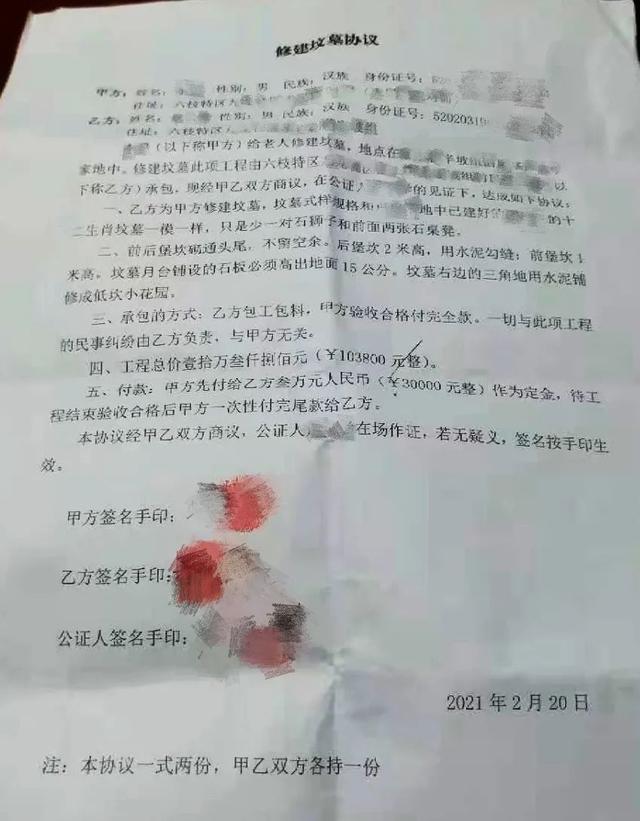 修建坟墓协议
甲方：姓名： 性别：男 民族：汉族 身份证号：520
住址：六枝特区大
乙方：姓名： 性别：男 民族：汉族 身份证号：52020319
住址：六枝特区 组
（以下称甲方）给老人修建坟墓，地点在
家地中。修建坟墓此项工程由六枝特区 以
下称乙方）承包，现经甲乙双方商议，在公证人 的见证下，达成如下协议：
一、乙方为甲方修建坟墓，坟墓式样规格和 地中已建好的 的十
二生肖坟墓一模一样，只是少一对石狮子和前面两张石桌凳。
二、前后堡坎码通头尾，不留空余。后堡坎2米高，用水泥勾缝；前堡坎1
米高。坟墓月台铺设的石板必须高出地面15公分。坟墓右边的三角地用水泥铺
修成低坎小花园。
三、承包的方式：乙方包工包料，甲方验收合格付完全款。一切与此项工程
的民事纠纷由乙方负责，与甲方无关。
四、工程总价壹拾万叁仟捌佰元（￥103800元整）。
五、付款：甲方先付给乙方叁万元人民币（￥30000元整）作为定金，待工
程结束验收合格后甲方一次性付完尾款给乙方。
本协议经甲乙双方商议，公证人 在场作证，若无疑义，签名按手印生
效。
甲方签名手印：
乙方签名手印：
公证人签名手印：
2021年2月20日
注：本协议一式两份，甲乙双方各持一份